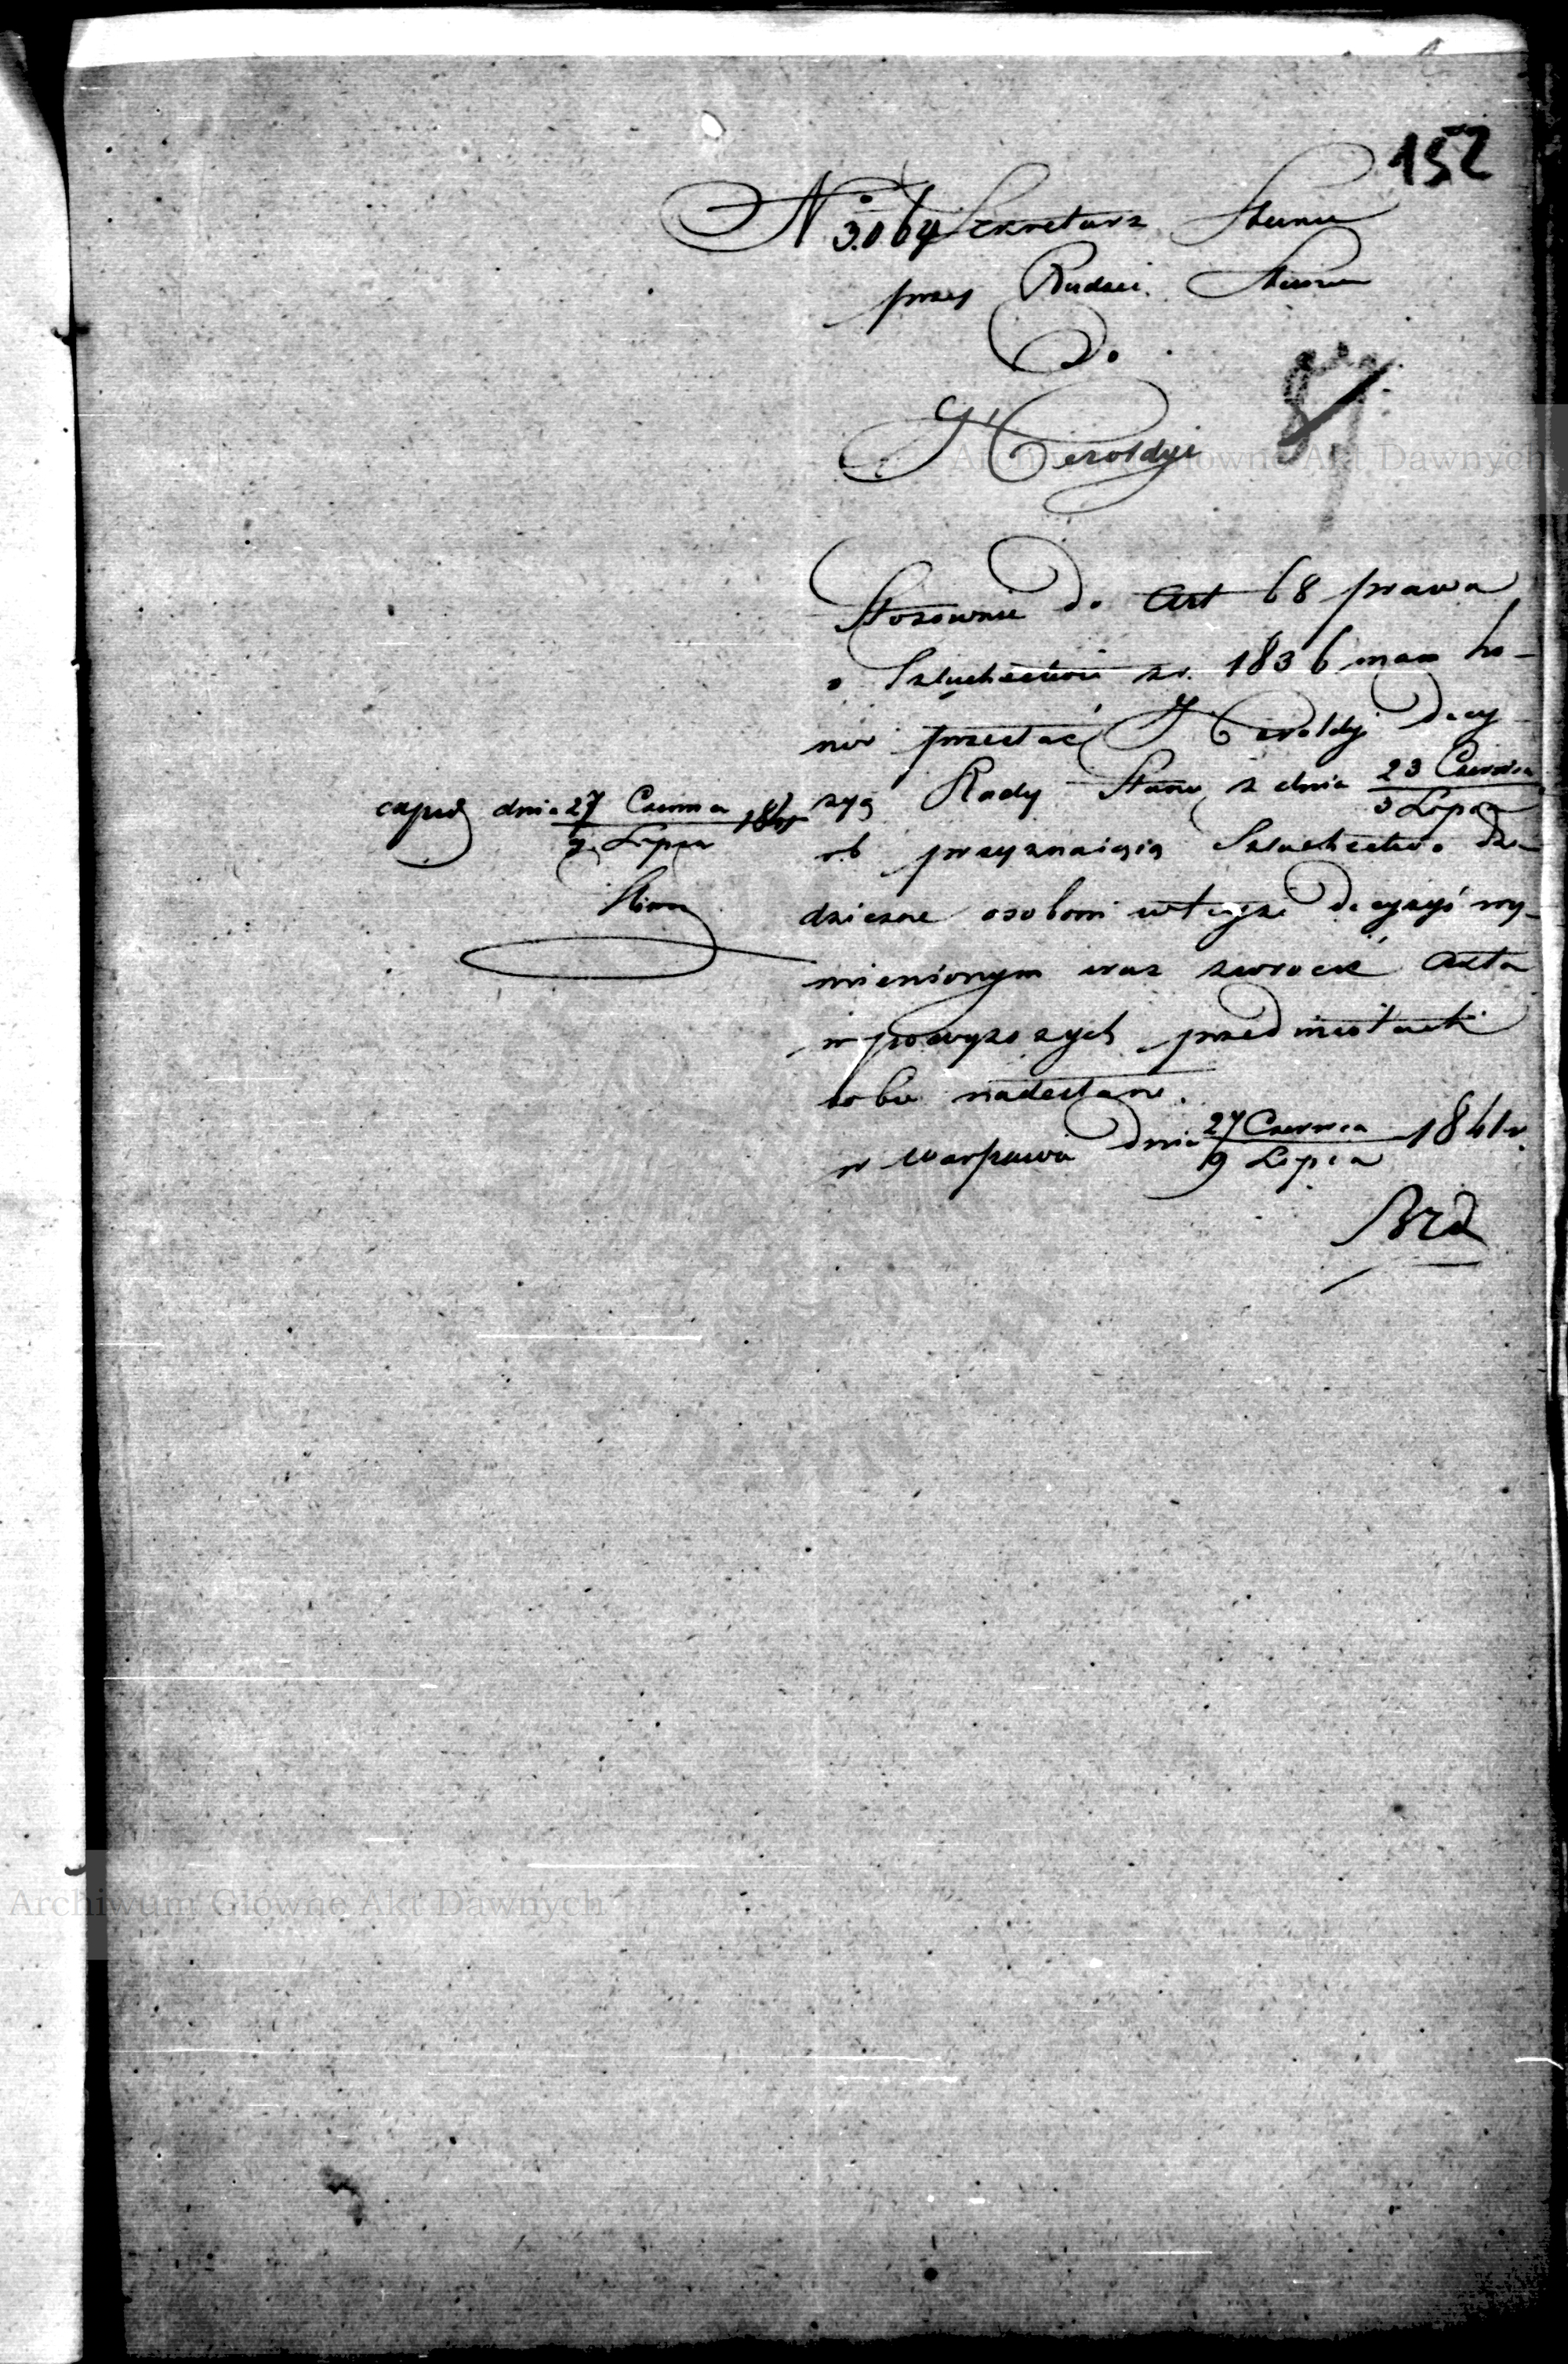 152
No 3.064 Sekretarz Stanu
przy Radzie Stanu
Do
Heroldyi
87
Archiwum Główne Akt Dawnych
Stosownie do Art 68 prawa
o Szlachectwie z r. 1836 mam ho-
nor przesłać Heroldyi decy-
zyą Rady Stanu z dnia 23 Czerwca
5 Lipca
rb przyznaiącą Szlachectwo dzie-
dziczne osobom w teyże decyzyi wy-
mienionym wraz zwrócić Akta
w powyższych przedmiotach
sobie nadesłane.
w Warszawie dnia 27 Czerwca
9 Lipca 1841 r.
exped dnia 27 Czerwca
9 Lipca 1841
Archiwum Główne Akt Dawnych